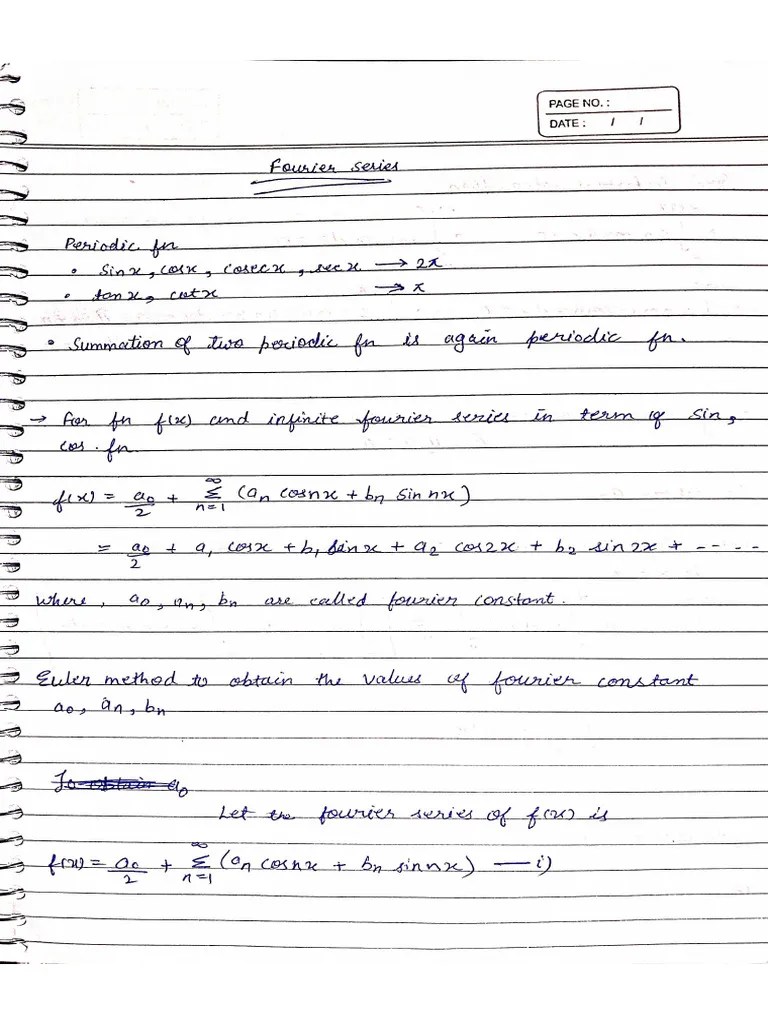 PAGE NO. :
DATE : / /
Fourier series
Periodic fn
• sinx, cosx, cosecx, secx → 2π
• tanx, cotx → π
• Summation of two periodic fn is again periodic fn.
→ For fn f(x) and infinite fourier series in term of sin,
cos. fn.
f(x) = a₀/2 + ∞Σn=1 (an cosnx + bn sin nx)
= a₀/2 + a₁ cosx + b₁ sinx + a₂ cos2x + b₂ sin 2x + -----
where, a₀, an, bn are called fourier constant.
Euler method to obtain the values of fourier constant
a₀, an, bn
To obtain a₀
Let the fourier series of f(x) is
f(x) = a₀/2 + ∞Σn=1 (an cosnx + bn sinnx) — i)